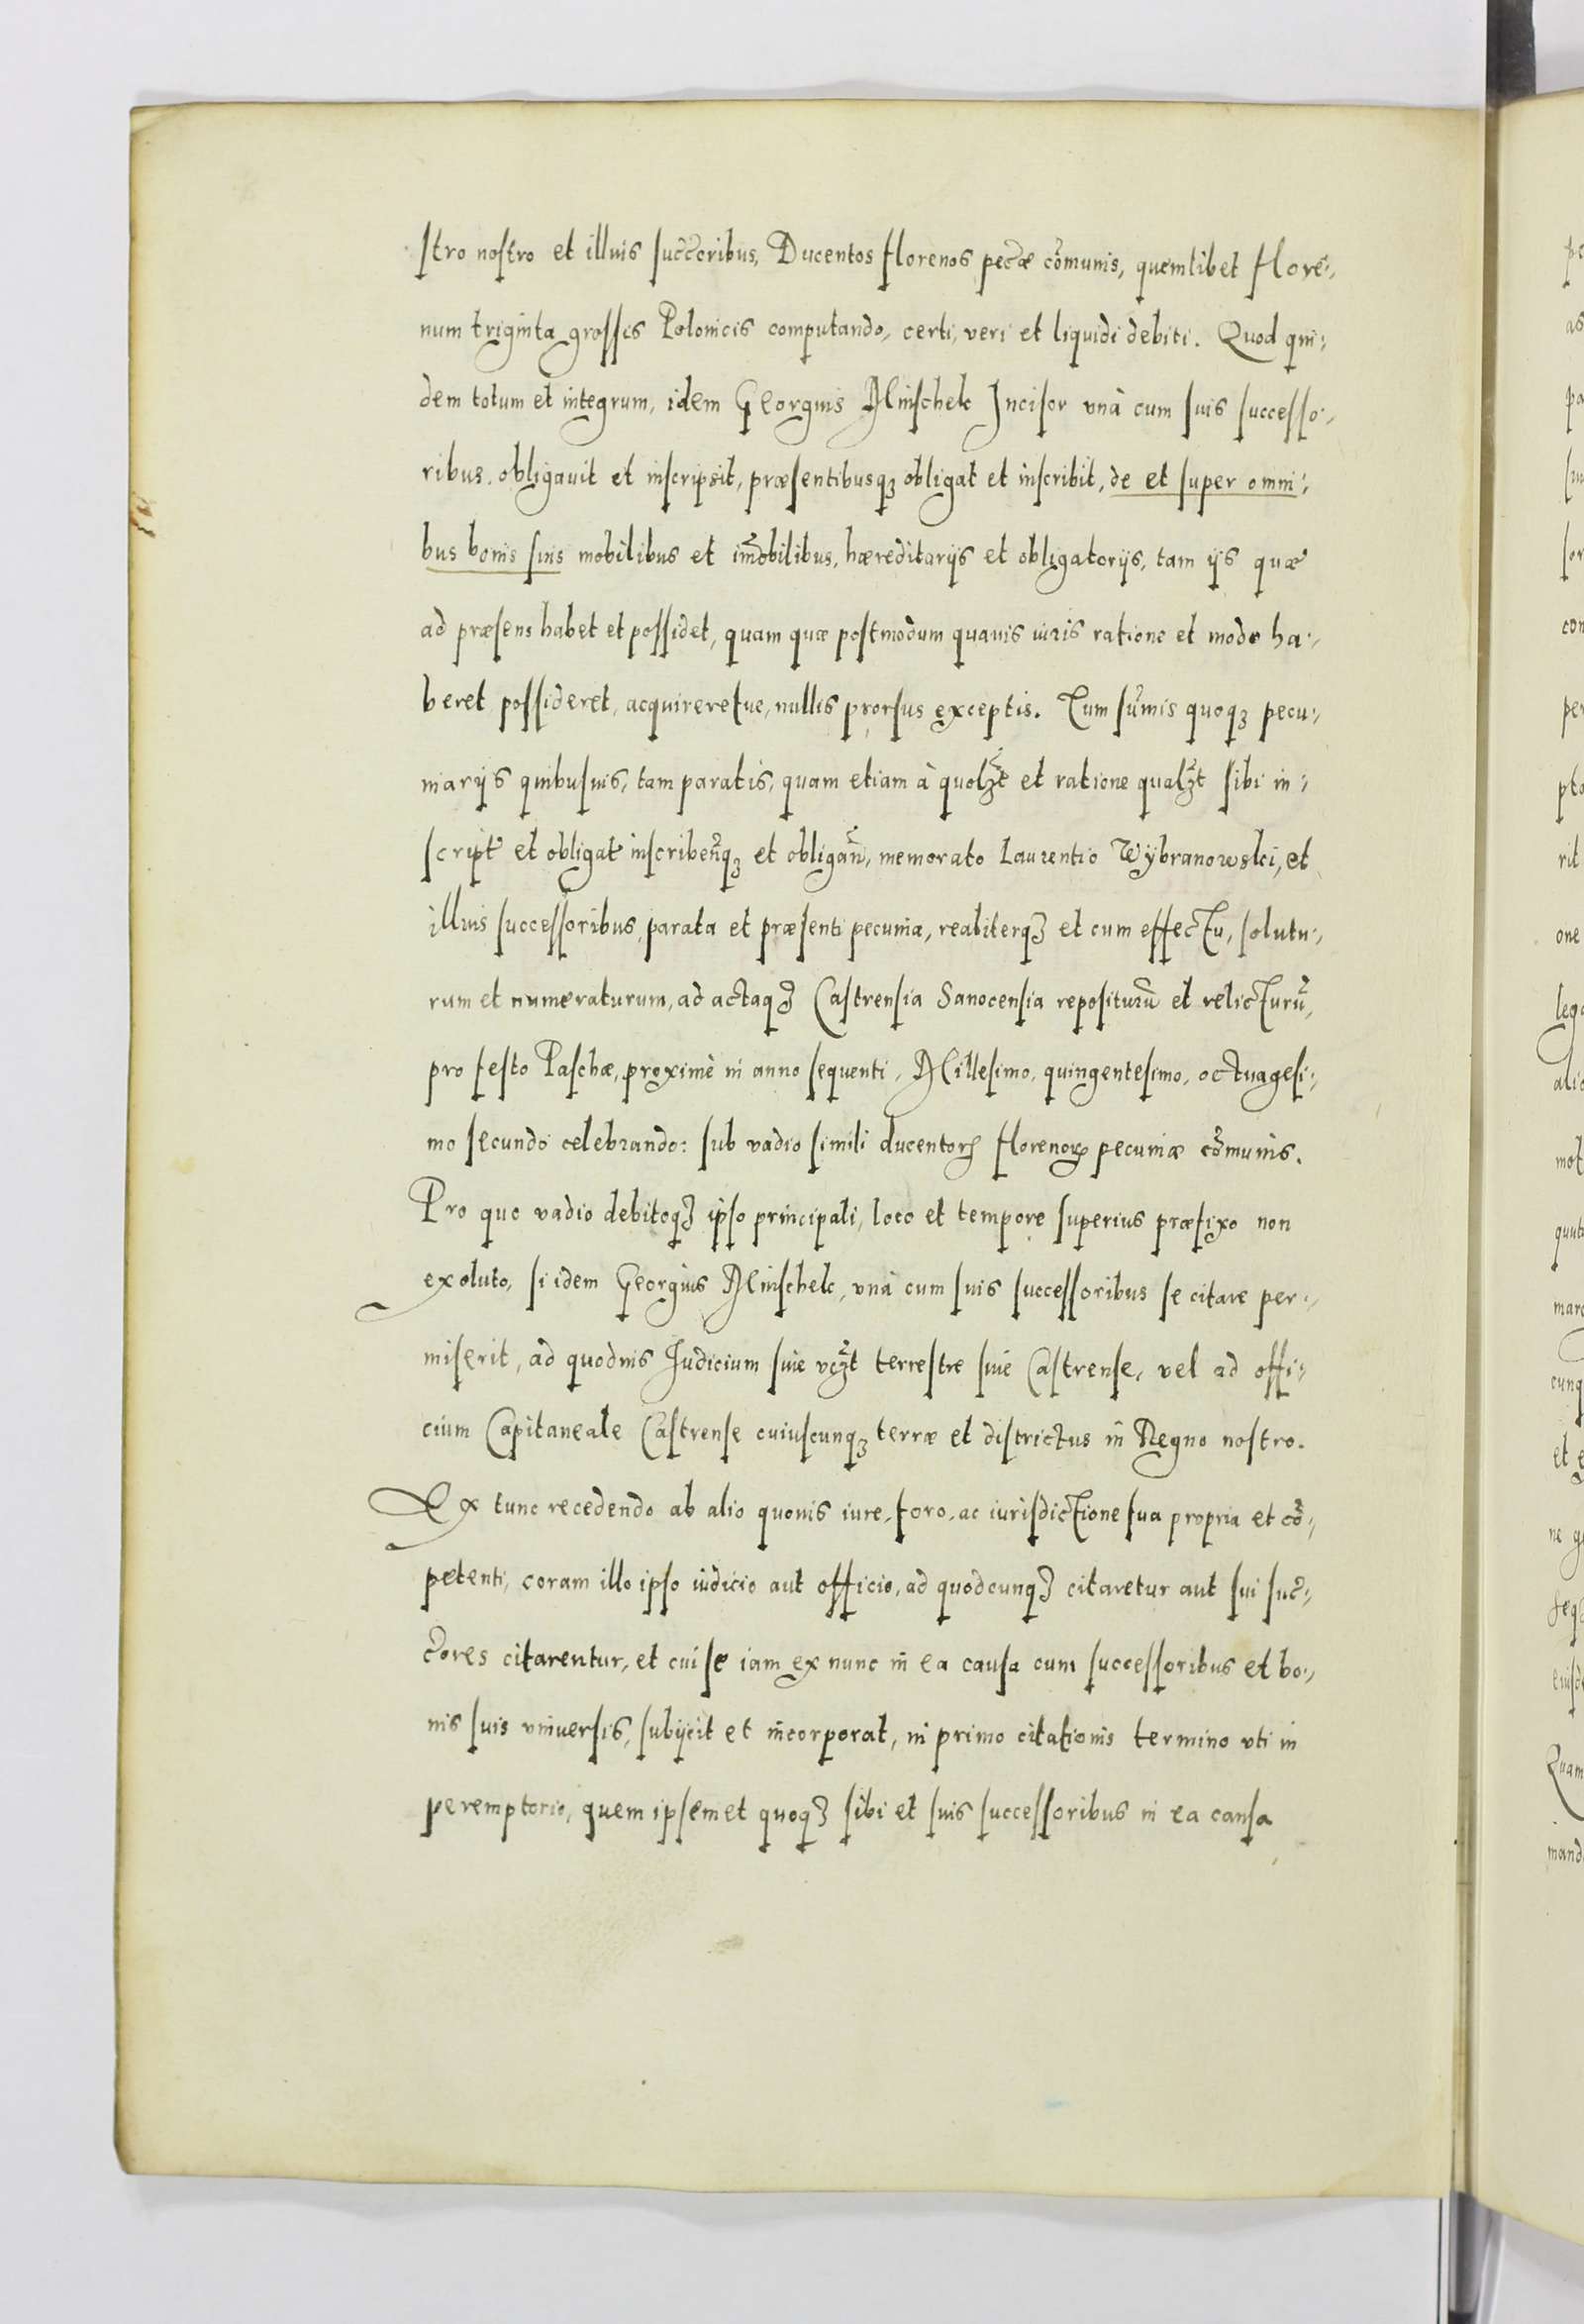 stro nostro et illius succoribus, Ducentos florenos pecæ comunis, quemlibet flore:,
num triginta grossis Polonicis computando, certi, veri et liquidi debiti. Quod qui:,
dem totum et integrum, idem Georgius Mnischek Incisor vnà cum suis successo:,
ribus, obligauit et inscripsit, præsentibusq3 obligat et inscribit, de et super omni:,
bus bonis suis mobilibus et imobilibus, hæreditarijs et obligatorijs, tam ijs quæ
ad præsens habet et possidet, quam quæ postmodum quauis iuris ratione et modo ha:,
beret possideret, acquireretue, nullis prorsus exceptis. Tum sumis quoq3 pecu:,
niarijs quibusuis, tam paratis, quam etiam à quolzt et ratione qualzt sibi in:,
script et obligat inscribenq3 et obligan, memorato Laurentio Wybranowski, et
illius successoribus, parata et præsenti pecunia, realiterq3 et cum effectu, solutu:,
rum et numeraturum, ad actaq3 Castrensia Sanocensia repositurũ et relicturũ,
pro festo Paschæ, proximè in anno sequenti, Millesimo, quingentesimo, octuagesi:,
mo secundo celebrando: sub vadio simili ducentorꝝ florenorꝝ pecuniæ comunis.
Pro quo vadio debitoq3 ipso principali, loco et tempore superius præfixo non
exoluto, si idem Georgius Mnischek, vnà cum suis successoribus se citare per:,
miserit, ad quoduis Judicium siue vczt terrestre siue Castrense, vel ad offi:,
cium Capitaneale Castrense cuiuscunq3 terræ et districtus in Regno nostro.
Ex tunc recedendo ab alio quouis iure, foro, ac iurisdictione sua propria et cõ:,
petenti, coram illo ipso iudicio aut officio, ad quodcunq3 citaretur aut sui suc:,
cores citarentur, et cui se iam ex nunc in ea causa cum successoribus et bo:,
nis suis vniuersis, subijcit et incorporat, in primo citationis termino vti in
peremptorio, quem ipsemet quoq3 sibi et suis successoribus in ea causa